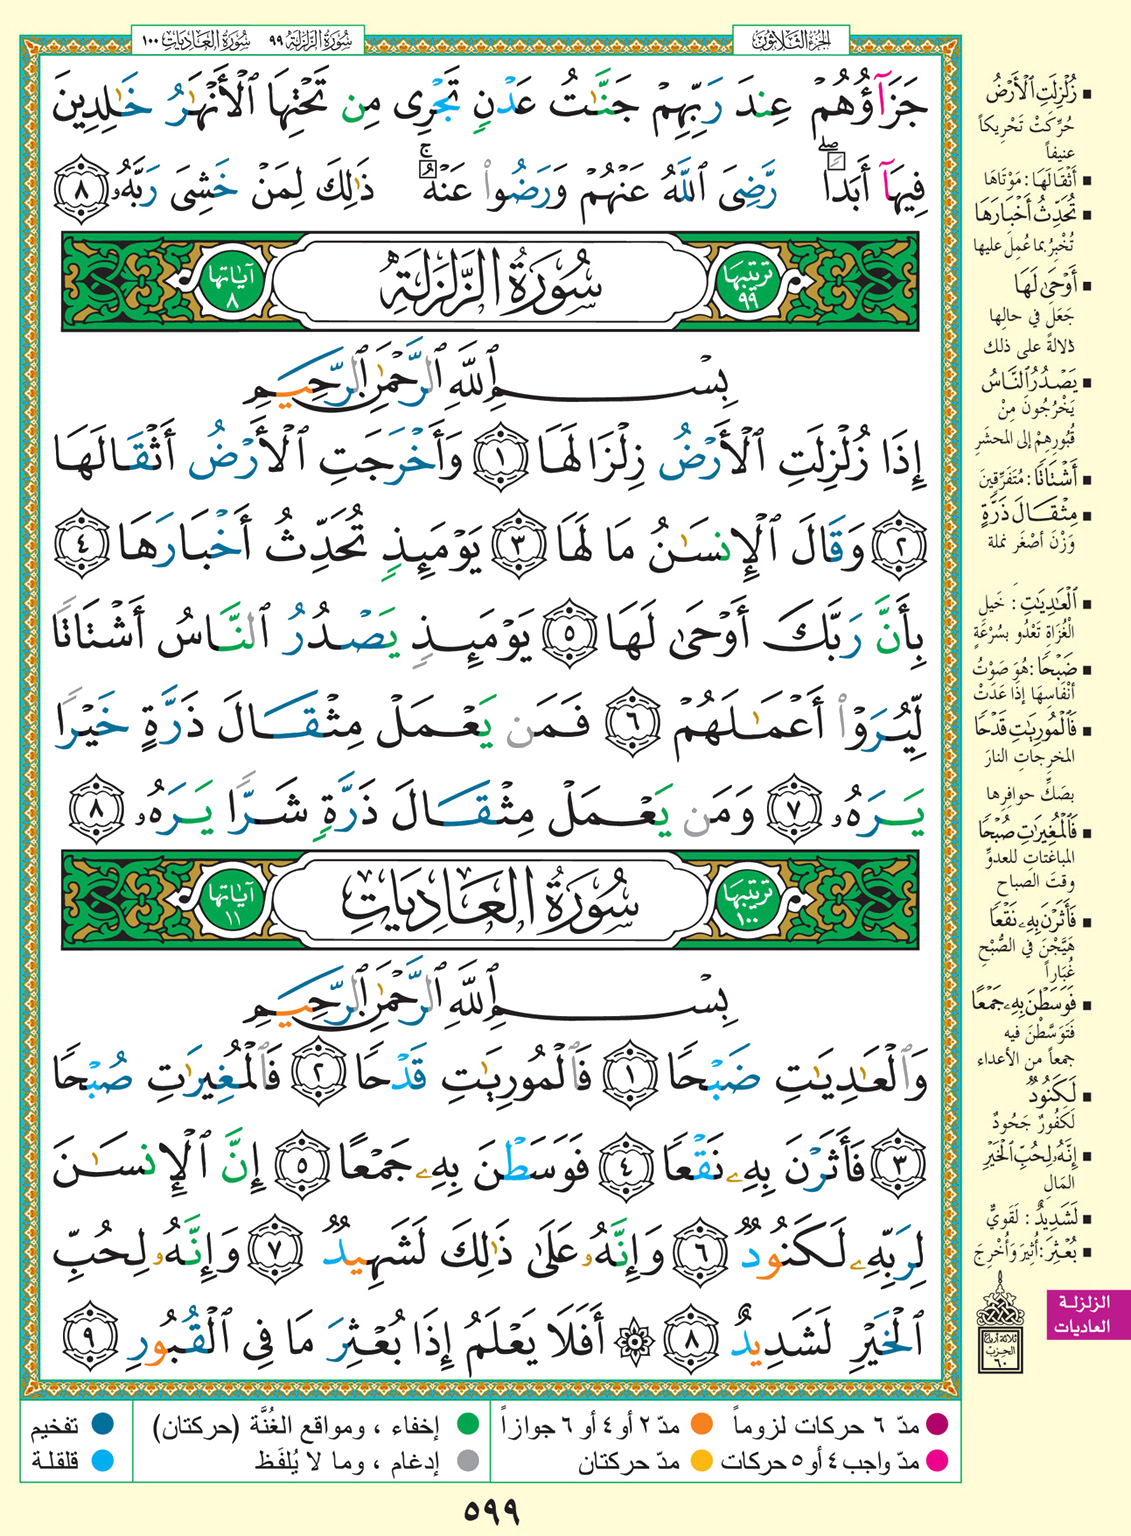 سُورَةُ الزَّلْزَلَةِ ٩٩ سُورَةُ العَادِيَاتِ ١٠٠
الجُزْءُ الثَّلَاثُونَ
جَزَآؤُهُمْ عِندَ رَبِّهِمْ جَنَّـٰتُ عَدْنٍ تَجْرِى مِن تَحْتِهَا ٱلْأَنْهَـٰرُ خَـٰلِدِينَ
فِيهَآ أَبَدًا ۖ رَّضِىَ ٱللَّهُ عَنْهُمْ وَرَضُوا۟ عَنْهُ ۚ ذَٰلِكَ لِمَنْ خَشِىَ رَبَّهُۥ ٨
ترتيبها ٩٩ سُورَةُ الزَّلْزَلَةِ آياتها ٨
بِسْمِ ٱللَّهِ ٱلرَّحْمَـٰنِ ٱلرَّحِيمِ
إِذَا زُلْزِلَتِ ٱلْأَرْضُ زِلْزَالَهَا ١ وَأَخْرَجَتِ ٱلْأَرْضُ أَثْقَالَهَا
٢ وَقَالَ ٱلْإِنسَـٰنُ مَا لَهَا ٣ يَوْمَئِذٍ تُحَدِّثُ أَخْبَارَهَا ٤
بِأَنَّ رَبَّكَ أَوْحَىٰ لَهَا ٥ يَوْمَئِذٍ يَصْدُرُ ٱلنَّاسُ أَشْتَاتًا
لِّيُرَوْا۟ أَعْمَـٰلَهُمْ ٦ فَمَن يَعْمَلْ مِثْقَالَ ذَرَّةٍ خَيْرًا
يَرَهُۥ ٧ وَمَن يَعْمَلْ مِثْقَالَ ذَرَّةٍ شَرًّا يَرَهُۥ ٨
ترتيبها ١٠٠ سُورَةُ العَادِيَاتِ آياتها ١١
بِسْمِ ٱللَّهِ ٱلرَّحْمَـٰنِ ٱلرَّحِيمِ
وَٱلْعَـٰدِيَـٰتِ ضَبْحًا ١ فَٱلْمُورِيَـٰتِ قَدْحًا ٢ فَٱلْمُغِيرَٰتِ صُبْحًا
٣ فَأَثَرْنَ بِهِۦ نَقْعًا ٤ فَوَسَطْنَ بِهِۦ جَمْعًا ٥ إِنَّ ٱلْإِنسَـٰنَ
لِرَبِّهِۦ لَكَنُودٌ ٦ وَإِنَّهُۥ عَلَىٰ ذَٰلِكَ لَشَهِيدٌ ٧ وَإِنَّهُۥ لِحُبِّ
ٱلْخَيْرِ لَشَدِيدٌ ٨ ۞ أَفَلَا يَعْلَمُ إِذَا بُعْثِرَ مَا فِى ٱلْقُبُورِ ٩
زُلْزِلَتِ ٱلْأَرْضُ
حُرِّكَتْ تَحْرِيكاً
عنيفاً
أَثْقَالَهَا : مَوْتَاهَا
تُحَدِّثُ أَخْبَارَهَا
تُخْبِرُ بما عُمِلَ عليها
أَوْحَىٰ لَهَا
جَعَلَ في حالِها
دَلالةً على ذلك
يَصْدُرُ ٱلنَّاسُ
يَخْرُجُونَ مِنْ
قُبُورِهِمْ إلى المحشَرِ
أَشْتَاتًا : مُتَفَرِّقِينَ
مِثْقَالَ ذَرَّةٍ
وَزْنَ أصْغَرِ نملة
ٱلْعَـٰدِيَـٰتِ : خَيلِ
الْغُزَاةِ تَعْدُو بسُرْعَةٍ
ضَبْحًا : هُوَ صَوْتُ
أنْفَاسِهَا إذَا عَدَتْ
فَٱلْمُورِيَـٰتِ قَدْحًا
المخرِجاتِ النارَ
بصَكِّ حوافِرِها
فَٱلْمُغِيرَٰتِ صُبْحًا
المباغتاتِ للعدوِّ
وقتَ الصباح
فَأَثَرْنَ بِهِۦ نَقْعًا
هَيَّجْنَ في الصُّبْحِ
غُبَاراً
فَوَسَطْنَ بِهِۦ جَمْعًا
فَتَوَسَّطْنَ فيه
جمعاً من الأعداء
لَكَنُودٌ
لَكَفُورٌ جَحُودٌ
إِنَّهُۥ لِحُبِّ ٱلْخَيْرِ
المَالِ
لَشَدِيدٌ : لَقَوِيٌّ
بُعْثِرَ : أُثِيرَ وَأُخْرِجَ
ثلاثة أرباع
الحزب
٦٠
الزلزلة
العاديات
مدّ ٦ حركات لزوماً مدّ ٢ أو ٤ أو ٦ جوازاً إخفاء ، ومواقع الغُنَّة (حركتان) تفخيم
مدّ واجب ٤ أو ٥ حركات مدّ حركتان إدغام ، وما لا يُلفَظ قلقلة
٥٩٩